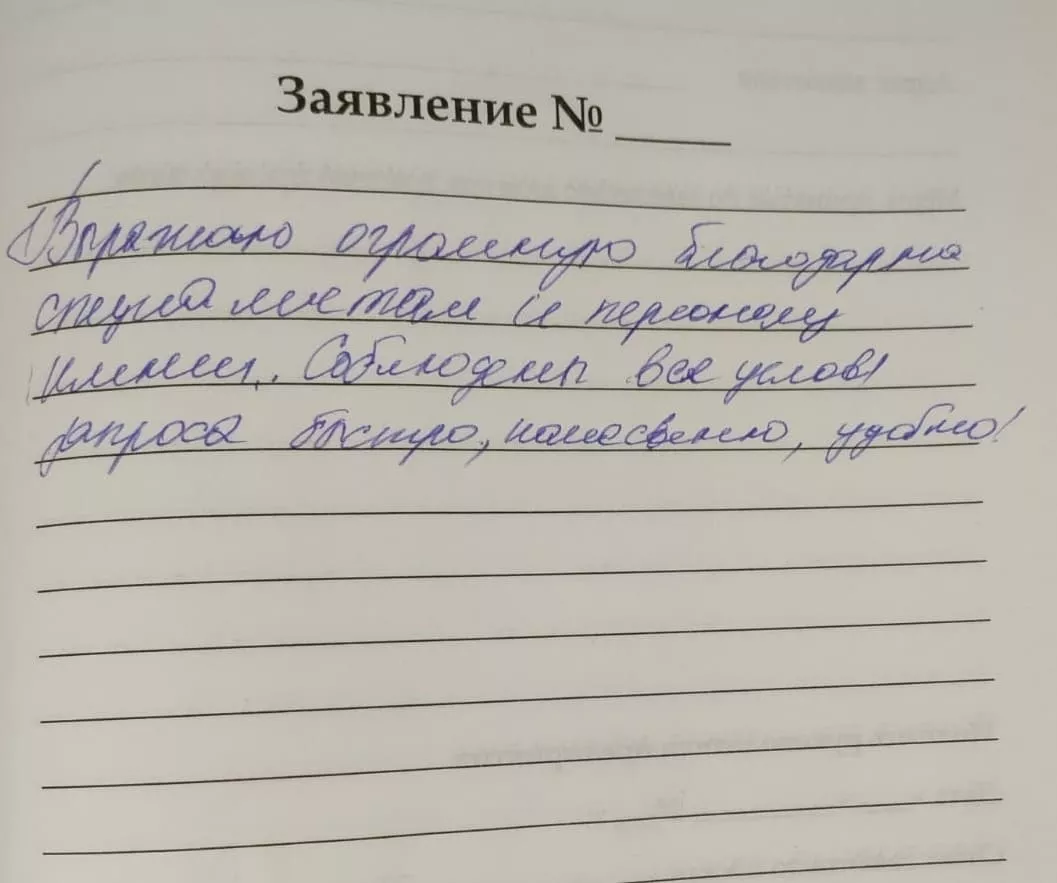 Заявление № ____
Выражаю огромную благодарно
специалистам и персоналу
клиники. Соблюдены все услов
запроса быстро, качественно, удобно!